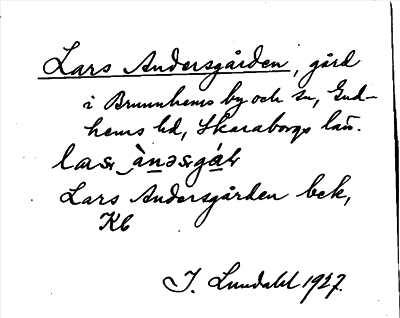 Lars Andersgården, gård
i Brunnhems by och sn, Gud-
hems hd, Skaraborgs län.
Lars Andersgården bek,
I. Lundahl 1927.